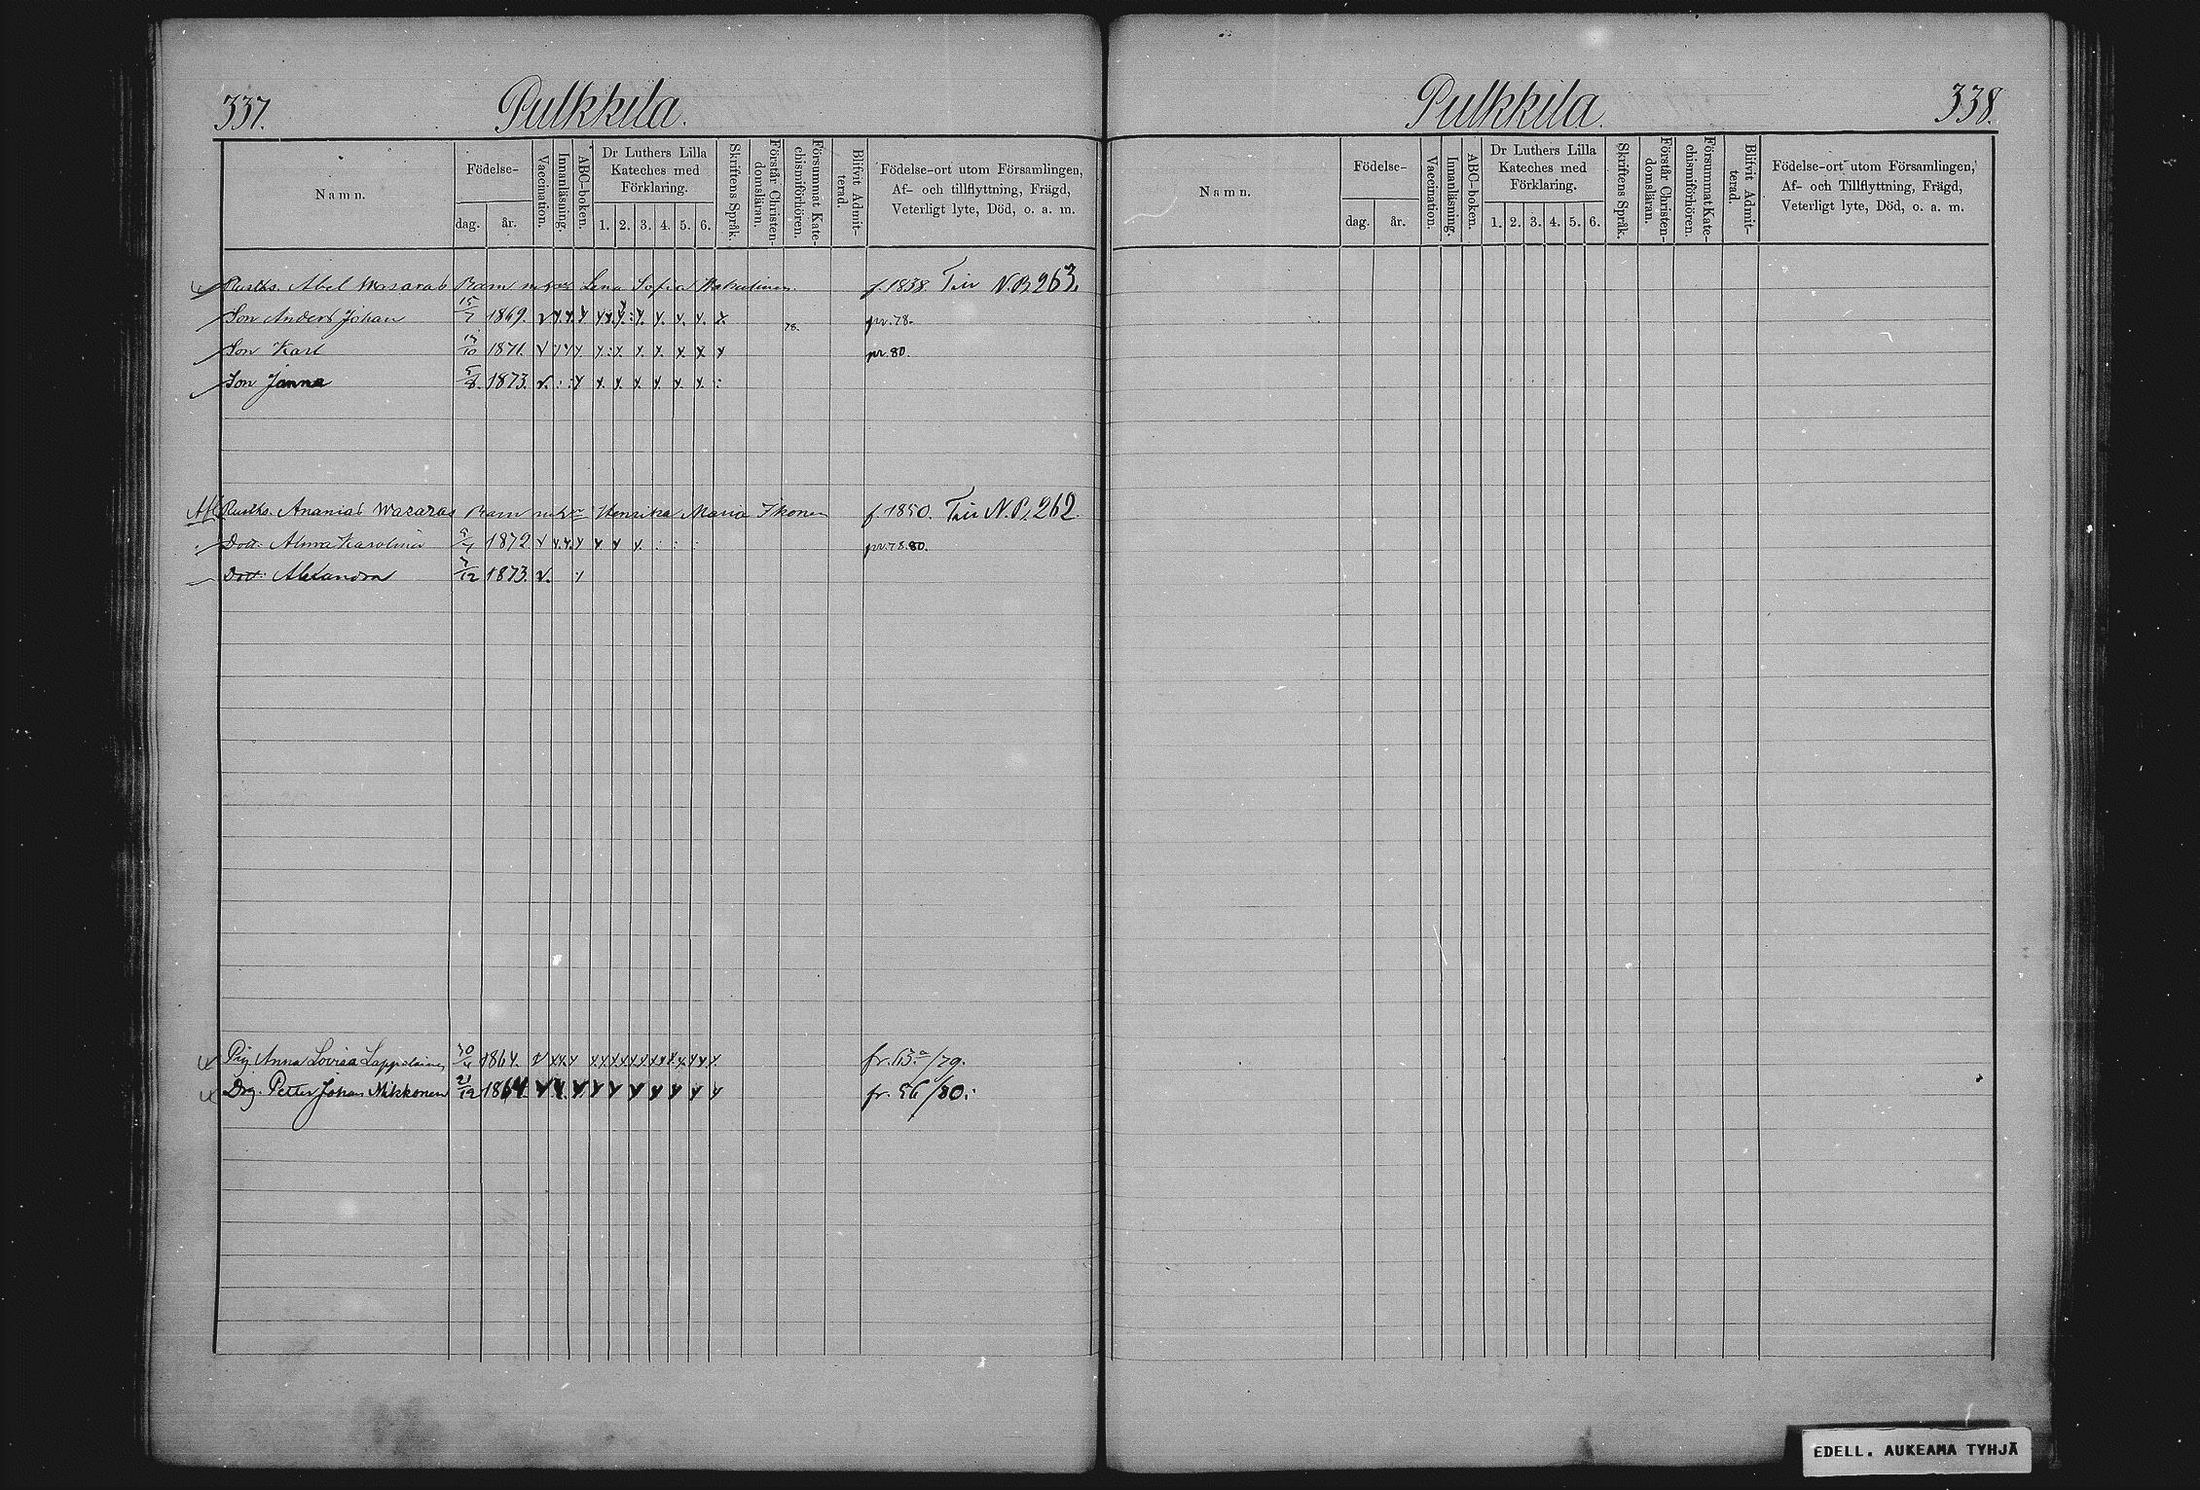 337. Pulkkila.
Namn.
Födelse-
dag. år.
Vaccination.
Innanläsning.
ABC-boken.
Dr Luthers Lilla Kateches med Förklaring.
1. 2. 3. 4. 5. 6.
Skriftens Språk.
Förstår Christen-domsläran.
Försummat Kate-chismiförhören.
Blifvit Admit-terad.
Födelse-ort utom Församlingen,
Af- och tillflyttning, Frägd,
Veterligt lyte, Död, o. a. m.
Rusth. Abel Wasaras Barn Lena Sofia f. 1838. N.B. 263.
Son Anders Johan 15/7 1869. 78. pr. 78.
Son Karl 1871. pr. 80.
Son Janne 1873.
Rusth. Ananias Wasaras Barn Henrika Maria Ikonen f. 1850. N.B. 262.
Dott. Alma Karolina 1872 pr. 78. 80.
Dott. Alexandra 1873.
Pig. Anna Lovisa Lappalainen 1864. fr. 63 /79.
Drg. Petter Johan Mikkonen 21/12 1864. fr. 56/80.
Pulkkila. 338.
Namn.
Födelse-
dag. år.
Vaccination.
Innanläsning.
ABC-boken.
Dr Luthers Lilla Kateches med Förklaring.
1. 2. 3. 4. 5. 6.
Skriftens Språk.
Förstår Christen-domsläran.
Försummat Kate-chismiförhören.
Blifvit Admit-terad.
Födelse-ort utom Församlingen,
Af- och Tillflyttning, Frägd,
Veterligt lyte, Död, o. a. m.
EDELL. AUKEAMA TYHJÄ